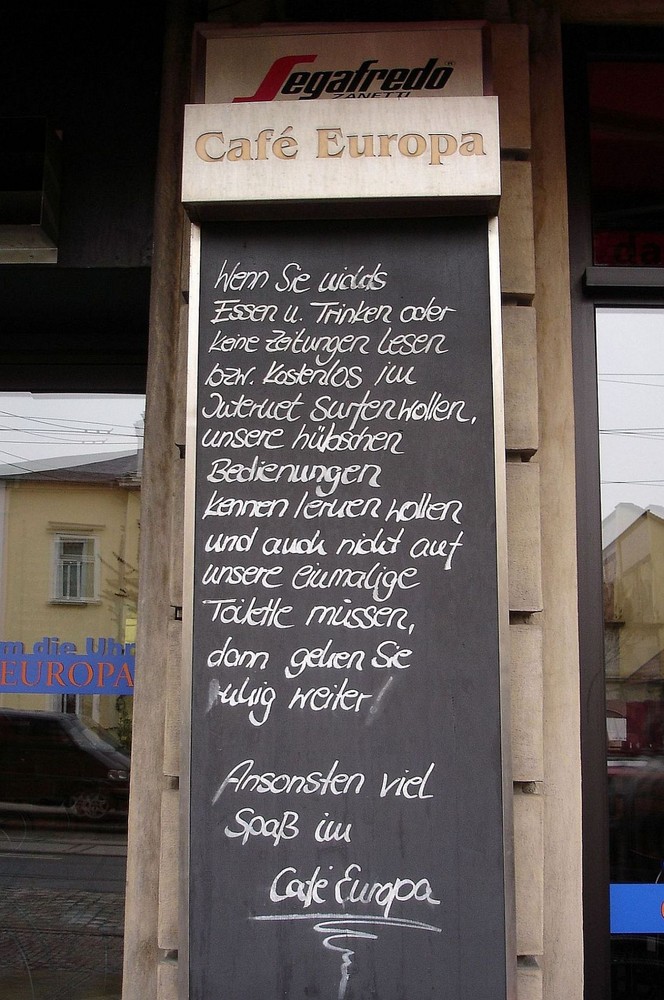 Segafredo
ZANETTI
Café Europa
Wenn Sie nichts
Essen u. Trinken oder
keine Zeitungen lesen
bzw. kostenlos im
Internet surfen wollen,
unsere hübschen
Bedienungen
kennen lernen wollen
und auch nicht auf
unsere einmalige
Toilette müssen,
dann gehen Sie
ruhig weiter!
Ansonsten viel
Spaß im
Café Europa
m die Uhr
EUROPA